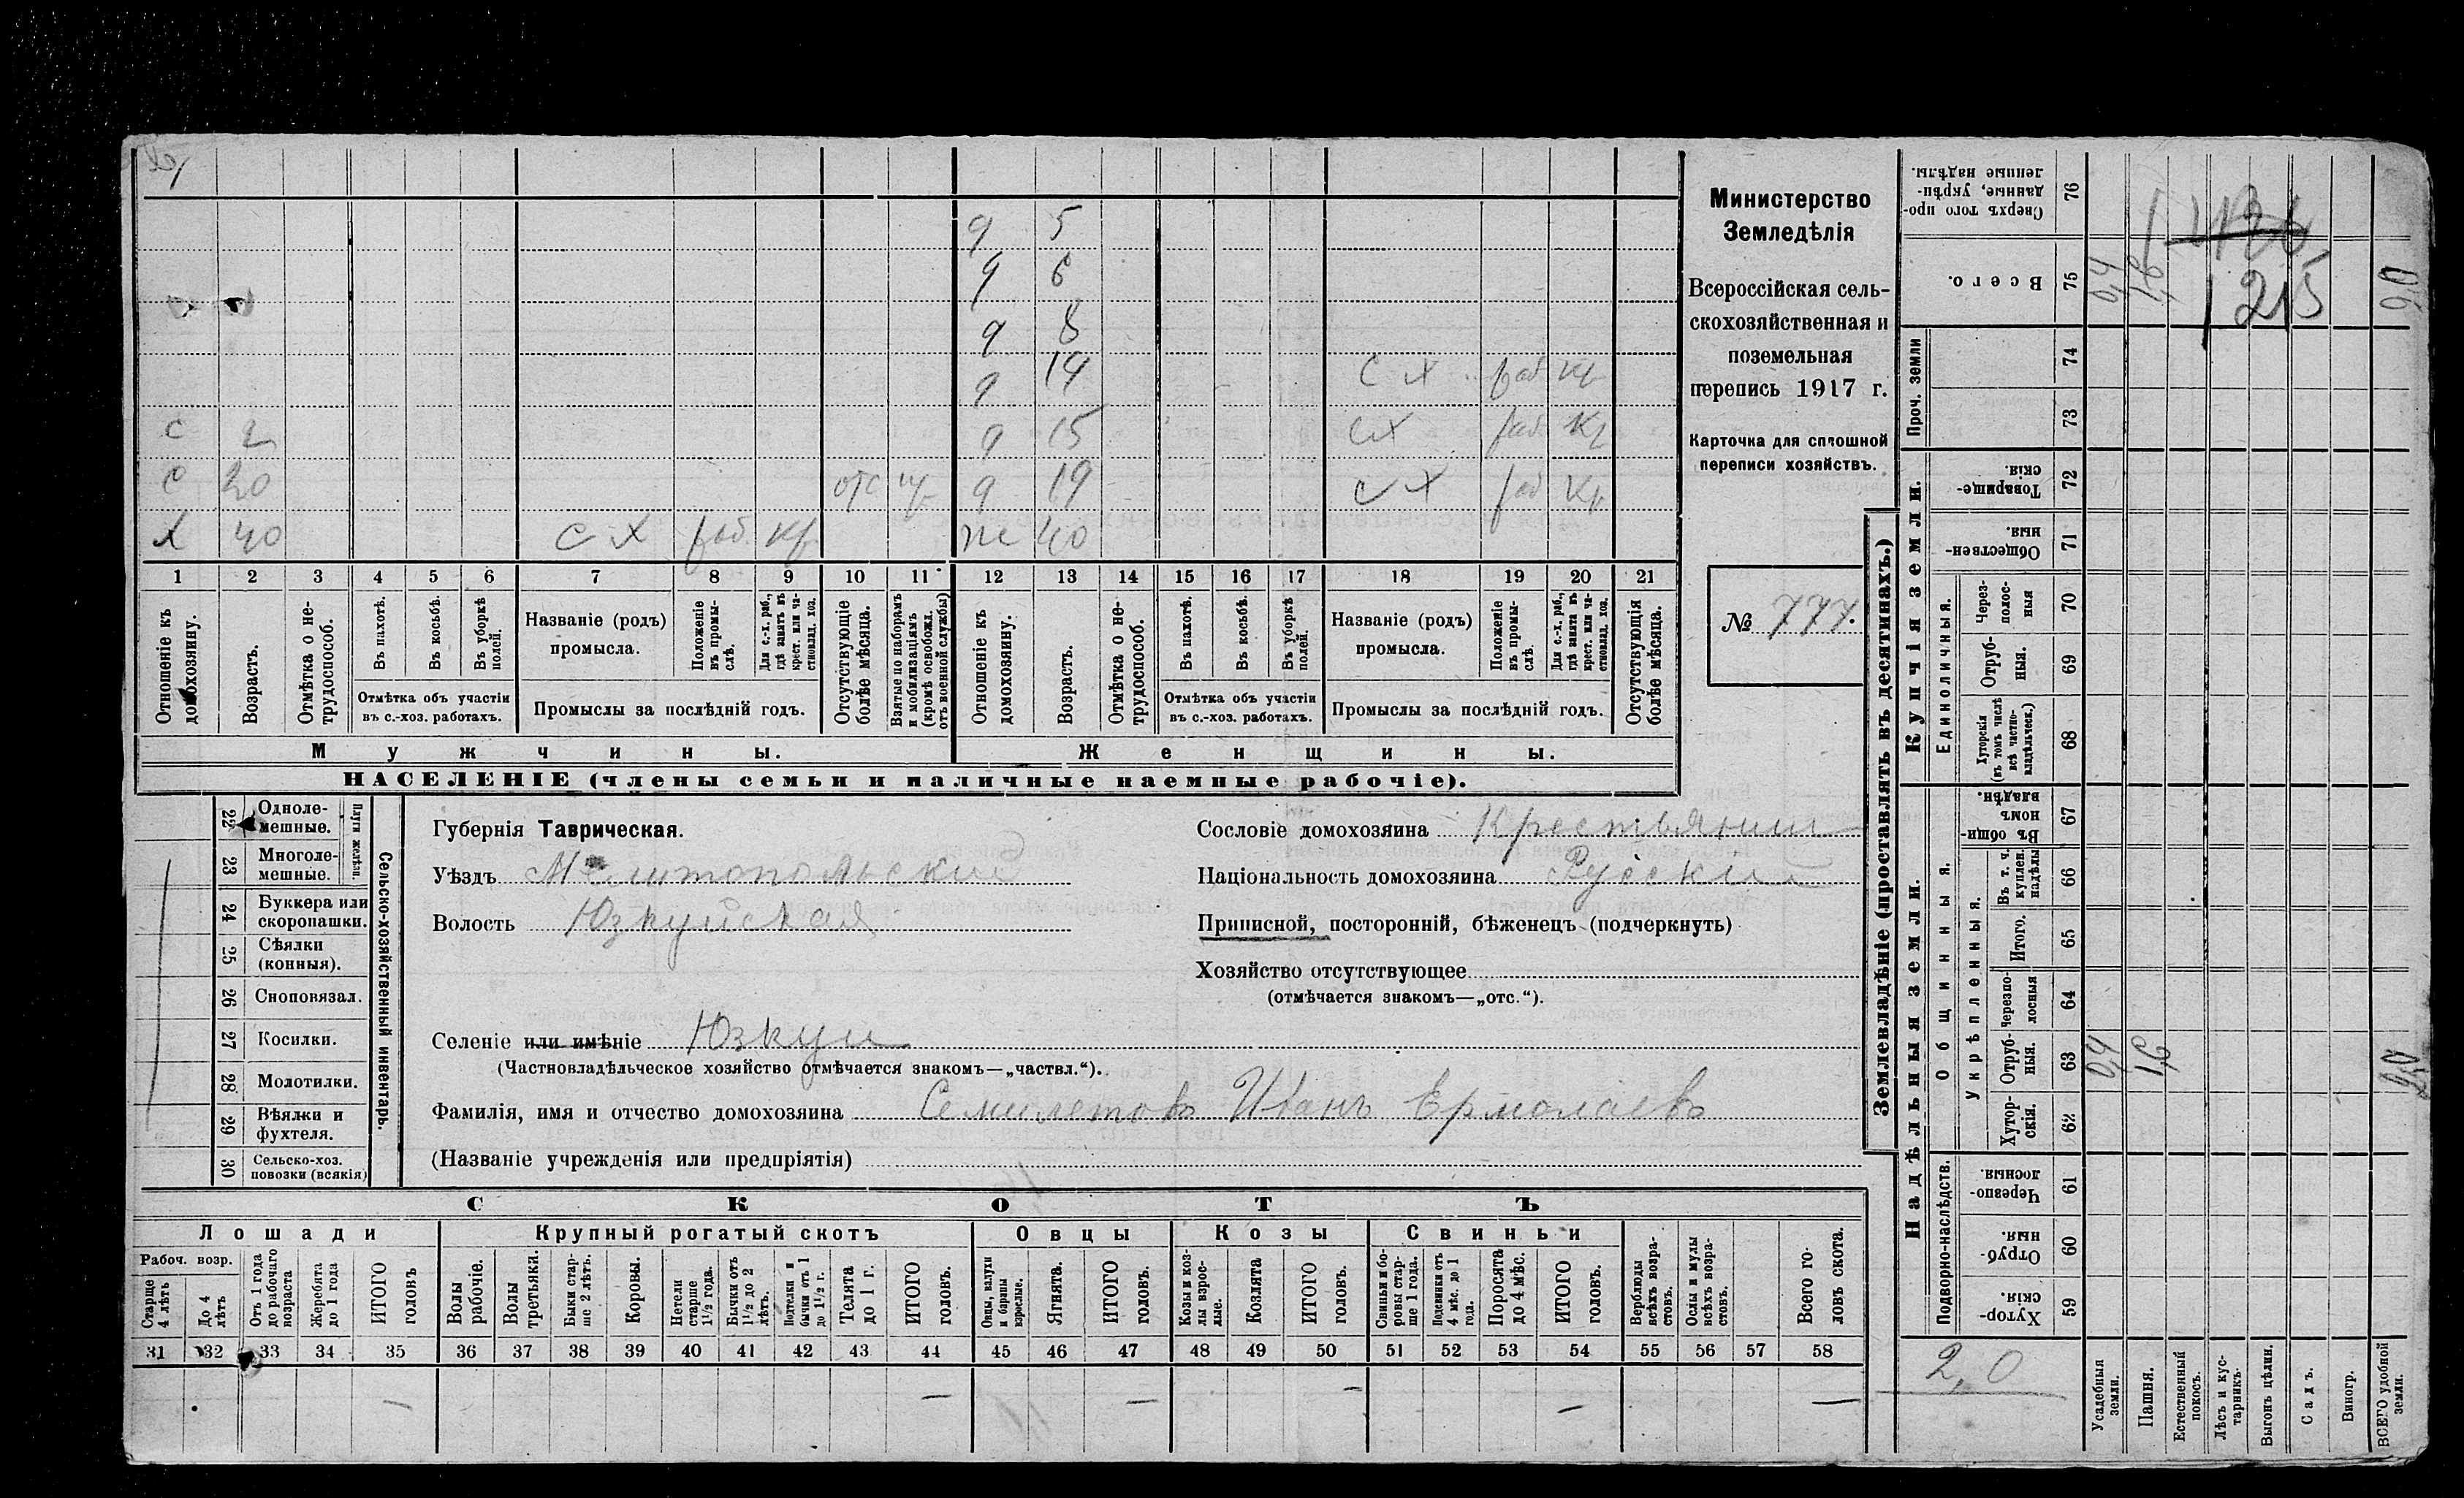 д 5
д 6
д 8
д 14 с х раб кр
с 2 д 15 с х раб кр
с 20 отс д 19 с х раб кр
х 40 с х раб кр же 40
1 2 3 4 5 6 7 8 9 10 11 12 13 14 15 16 17 18 19 20 21
Отношеніе къ домохозяину.
Возрастъ.
Отмѣтка о нетрудоспособ.
Въ пахотѣ.
Въ косьбѣ.
Въ уборкѣ полей.
Отмѣтка объ участіи въ с.-хоз. работахъ.
Названіе (родъ) промысла.
Положеніе въ промыслѣ.
Для с.-х. раб., гдѣ занятъ въ крест. или частновлад. хоз.
Промыслы за послѣдній годъ.
Отсутствующіе болѣе мѣсяца.
Взятые по наборамъ и мобилизаціямъ (кромѣ освобожд. отъ военной службы)
Отношеніе къ домохозяину.
Возрастъ.
Отмѣтка о нетрудоспособ.
Въ пахотѣ.
Въ косьбѣ.
Въ уборкѣ полей.
Отмѣтка объ участіи въ с.-хоз. работахъ.
Названіе (родъ) промысла.
Положеніе въ промыслѣ.
Для с.-х. раб., гдѣ занята въ крест. или частновлад. хоз.
Промыслы за послѣдній годъ.
Отсутствующія болѣе мѣсяца.
Мужчины. Женщины.
НАСЕЛЕНІЕ (члены семьи и наличные наемные рабочіе).
Министерство
Земледѣлія
Всероссійская сель-
скохозяйственная и
поземельная
перепись 1917 г.
Карточка для сплошной
переписи хозяйствъ.
№ 777.
22 Одноле-мешные.
23 Многоле-мешные.
Плуги желѣзн.
24 Буккера или скоропашки.
25 Сѣялки (конныя).
26 Сноповязал.
27 Косилки.
28 Молотилки.
29 Вѣялки и фухтеля.
30 Сельско-хоз. повозки (всякія)
Сельско-хозяйственный инвентарь.
Губернія Таврическая.
Уѣздъ Мелитопольскій
Волость Юзкуйская
Сословіе домохозяина Крестьянин
Національность домохозяина Русскій
Приписной, посторонній, бѣженецъ (подчеркнуть)
Хозяйство отсутствующее
(отмѣчается знакомъ—„отс.“).
Селеніе или имѣніе Юзкуи
(Частновладѣльческое хозяйство отмѣчается знакомъ—„частвл.“).
Фамилія, имя и отчество домохозяина Семилетовъ Иванъ Ермолаевъ
(Названіе учрежденія или предпріятія)
СКОТЪ
Лошади Крупный рогатый скотъ Овцы Козы Свиньи
Рабоч. возр.
Старше 4 лѣтъ
До 4 лѣтъ
Отъ 1 года до рабочаго возраста
Жеребята до 1 года
ИТОГО головъ
Волы рабочіе.
Волы третьяки.
Быки старше 2 лѣтъ.
Коровы.
Нетели старше 1½ года.
Бычки отъ 1½ до 2 лѣтъ.
Подтелки и бычки отъ 1 до 1½ г.
Телята до 1 г.
ИТОГО головъ.
Овцы, валухи и бараны взрослые.
Ягнята.
ИТОГО головъ.
Козы и козлы взрослые.
Козлята
ИТОГО головъ.
Свиньи и боровы старше 1 года.
Подсвинки отъ 4 мѣс. до 1 года.
Поросята до 4 мѣс.
ИТОГО головъ.
Верблюды всѣхъ возрастовъ.
Ослы и мулы всѣхъ возрастовъ.
Всего головъ скота.
31 32 33 34 35 36 37 38 39 40 41 42 43 44 45 46 47 48 49 50 51 52 53 54 55 56 57 58
— — — — — —
Землевладѣніе (проставлять въ десятинахъ.)
Сверхъ того проданные, укрѣпленные надѣлы. 76 1426
Всего. 75 0,4 1,6 1215 2,0
Проч. земли 74
73
Купчія земли.
Товарищескія. 72
Общественныя. 71
Единоличныя.
Черезполосныя 70
Отрубныя. 69
Хуторскія (въ томъ числѣ всѣ частновладѣльческ.) 68
Надѣльныя земли.
Общинныя.
Въ общинномъ владѣн. 67
Укрѣпленныя.
Въ т. ч. куплен. надѣлы 66
Итого. 65
Черезполосныя 64
Отрубныя. 63 0,4 1,6 2,0
Хуторскія. 62
Подворно-наслѣдств.
Черезполосныя. 61
Отрубныя. 60
Хуторскія. 59
2,0
Усадебныя земли.
Пашня.
Естественный покосъ.
Лѣсъ и кустарникъ.
Выгонъ цѣлин.
Садъ.
Виногр.
ВСЕГО удобной земли.